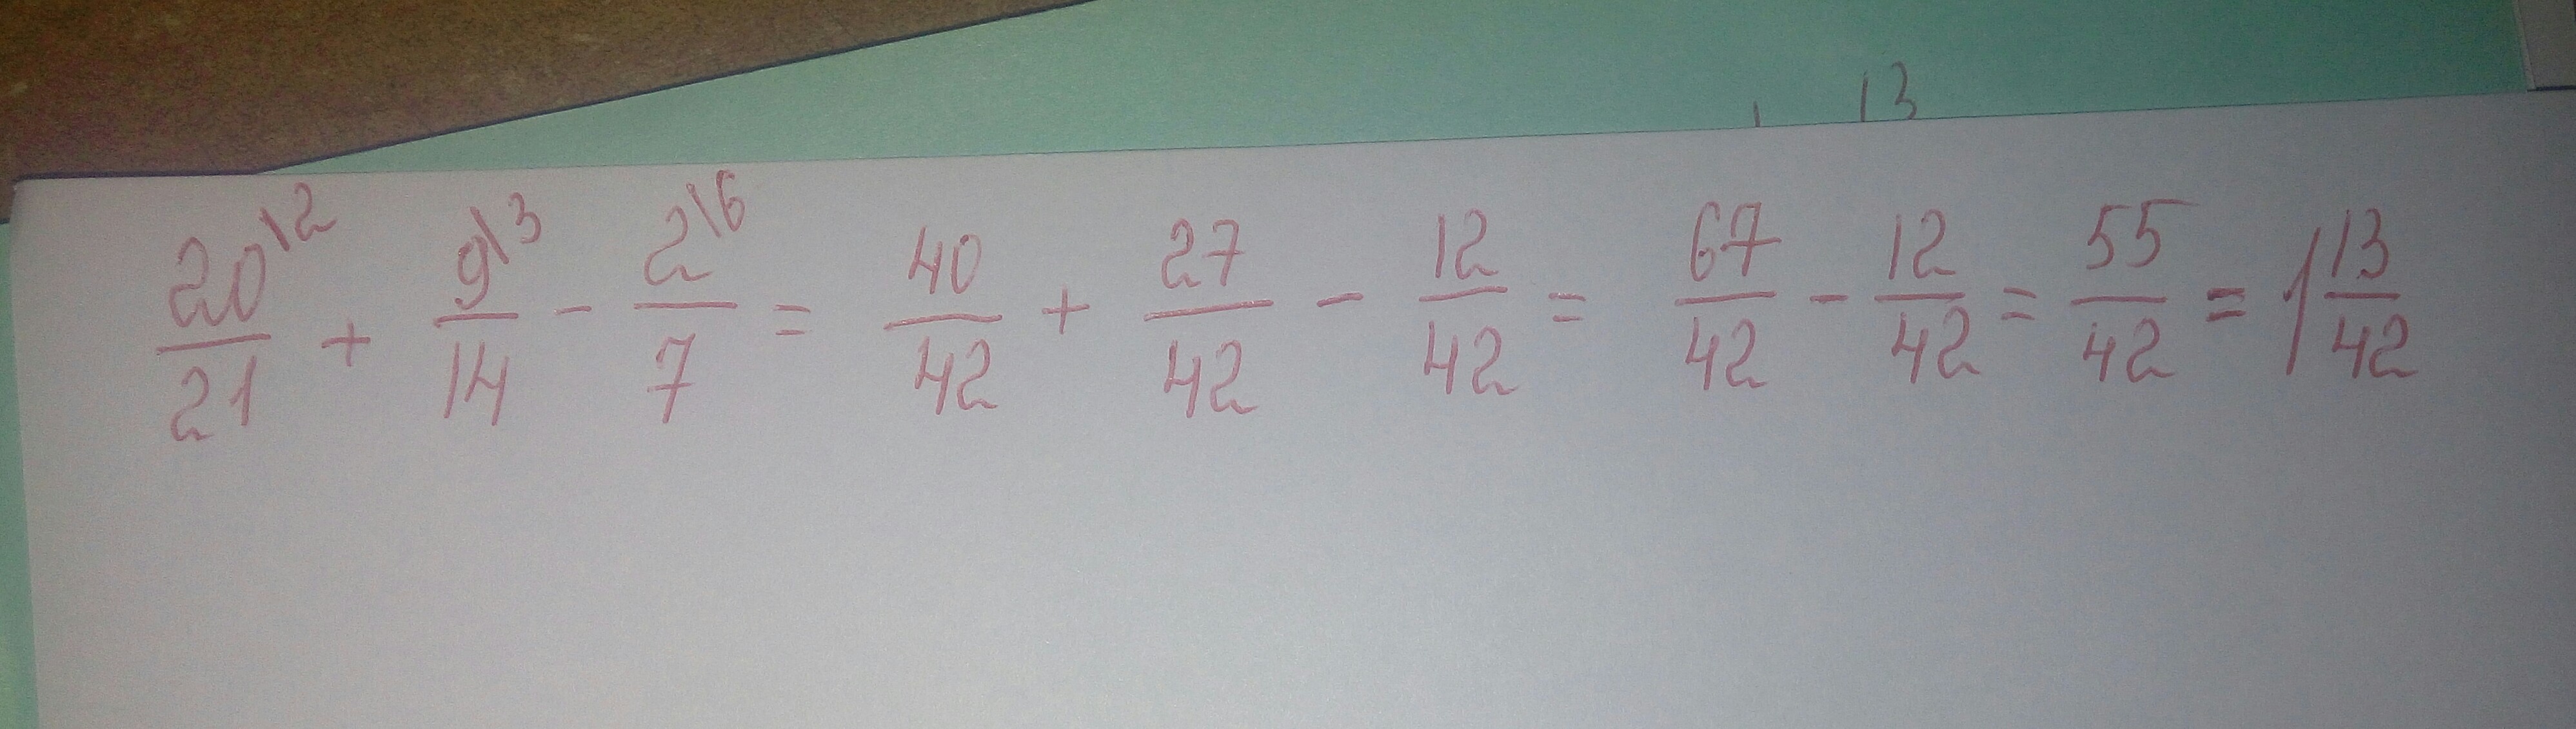 13
20\2/21 + 9\3/14 - 2\6/7 = 40/42 + 27/42 - 12/42 = 67/42 - 12/42 = 55/42 = 1 13/42